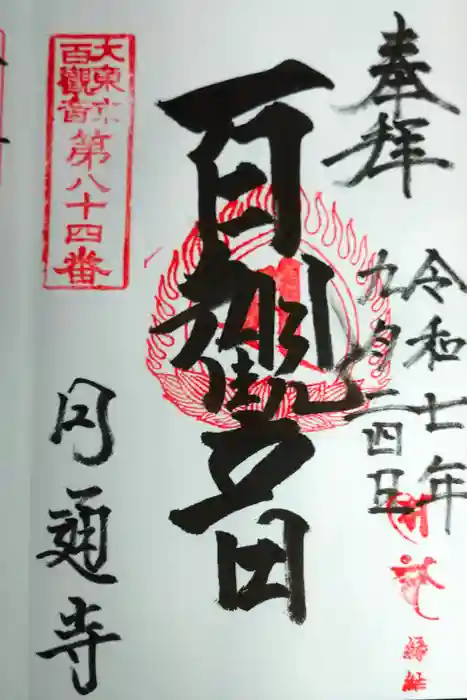 奉拝
令和七年
九月二四日
百観音
大東京
百觀音
第八十四番
円通寺